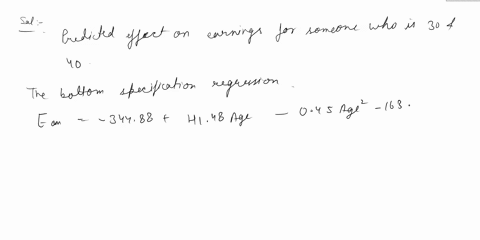 Sol:- Predicted effect on earnings for someone who is 30 &
40.
The bottom specification regression.
Eam = -344.88 + 41.48 Age - 0.45 Age² - 163.